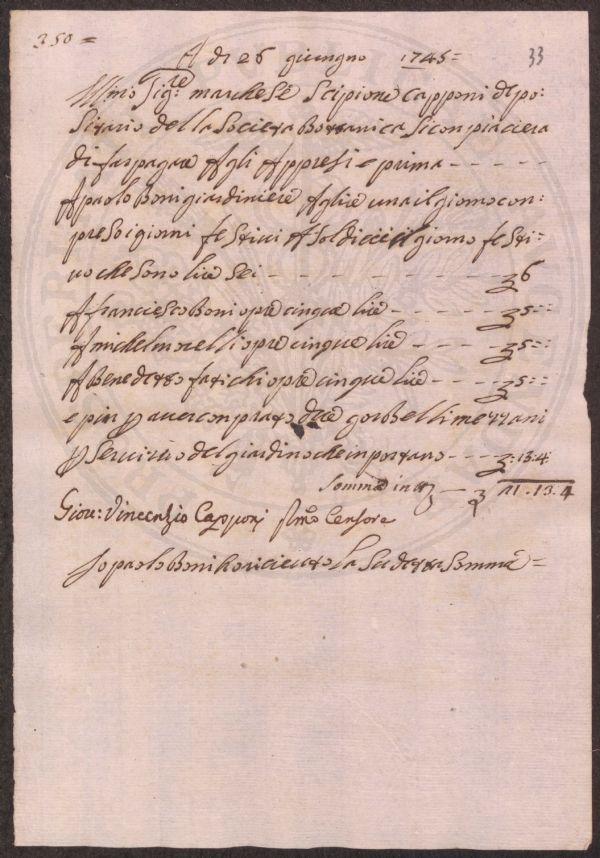 350 =
33
A di 26 giungno 1745 =
Illmo Sigre marchese Scipione Capponi depo=
sitario della Societa Bottanica Si conpiaciera
di far pagare Agli Appresi e prima - - - - -
A paolo Boni giardiniere A lire una il giorno con
preso i giorni festivi A Soldi dieci il giorno festi=
uo che sono lire sei - - - - - - - - - 6
A franciesco Boni opre cinque lire - - - - - 5 = =
A michel morelli opre cinque lire - - - - 5 = =
A Benedetto fatichi opre cinque lire - - - 5 = =
e piu p auer conprato due gorbelli mezzani
p Seruizio del giardino che inportano - - - : 13.4
Somma in tt - - 21 . 13. 4
Giou: Vincenzio Capponi Pmo Censore
Io paolo Boni ho riceuto La Su detta Somma =